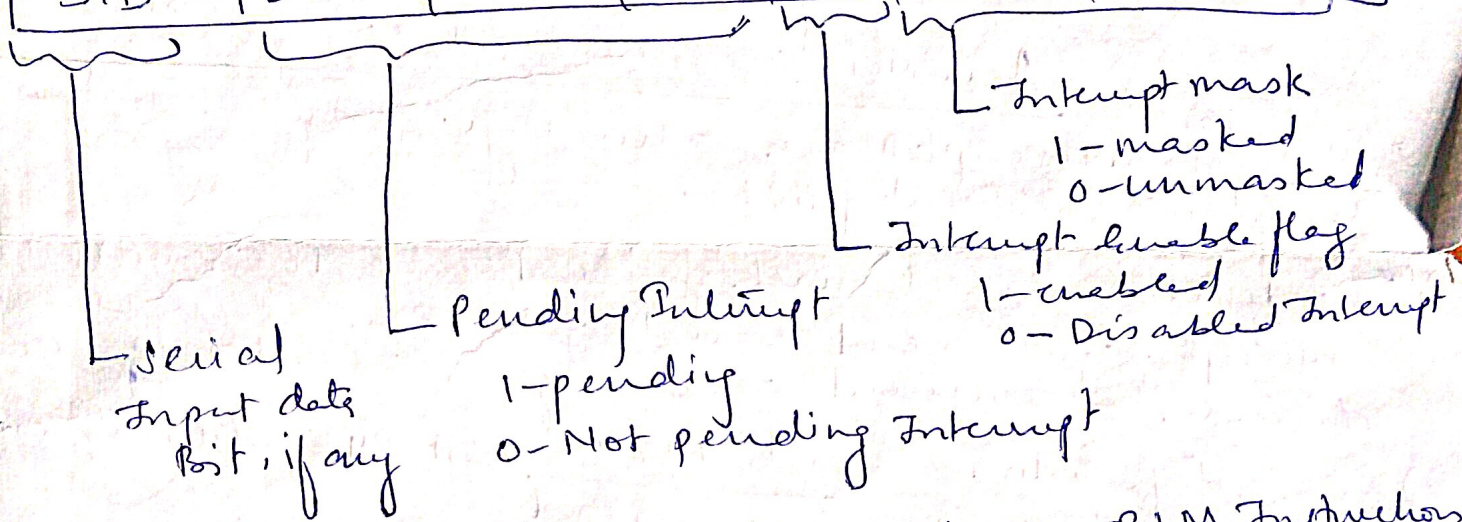 Interrupt mask
1-masked
0-unmasked
Interrupt Enable flag
1-enabled
0-Disabled Interrupt
Pending Interrupt
1-pending
0-Not pending Interrupt
Serial
Input data
Bit, if any
Instructions